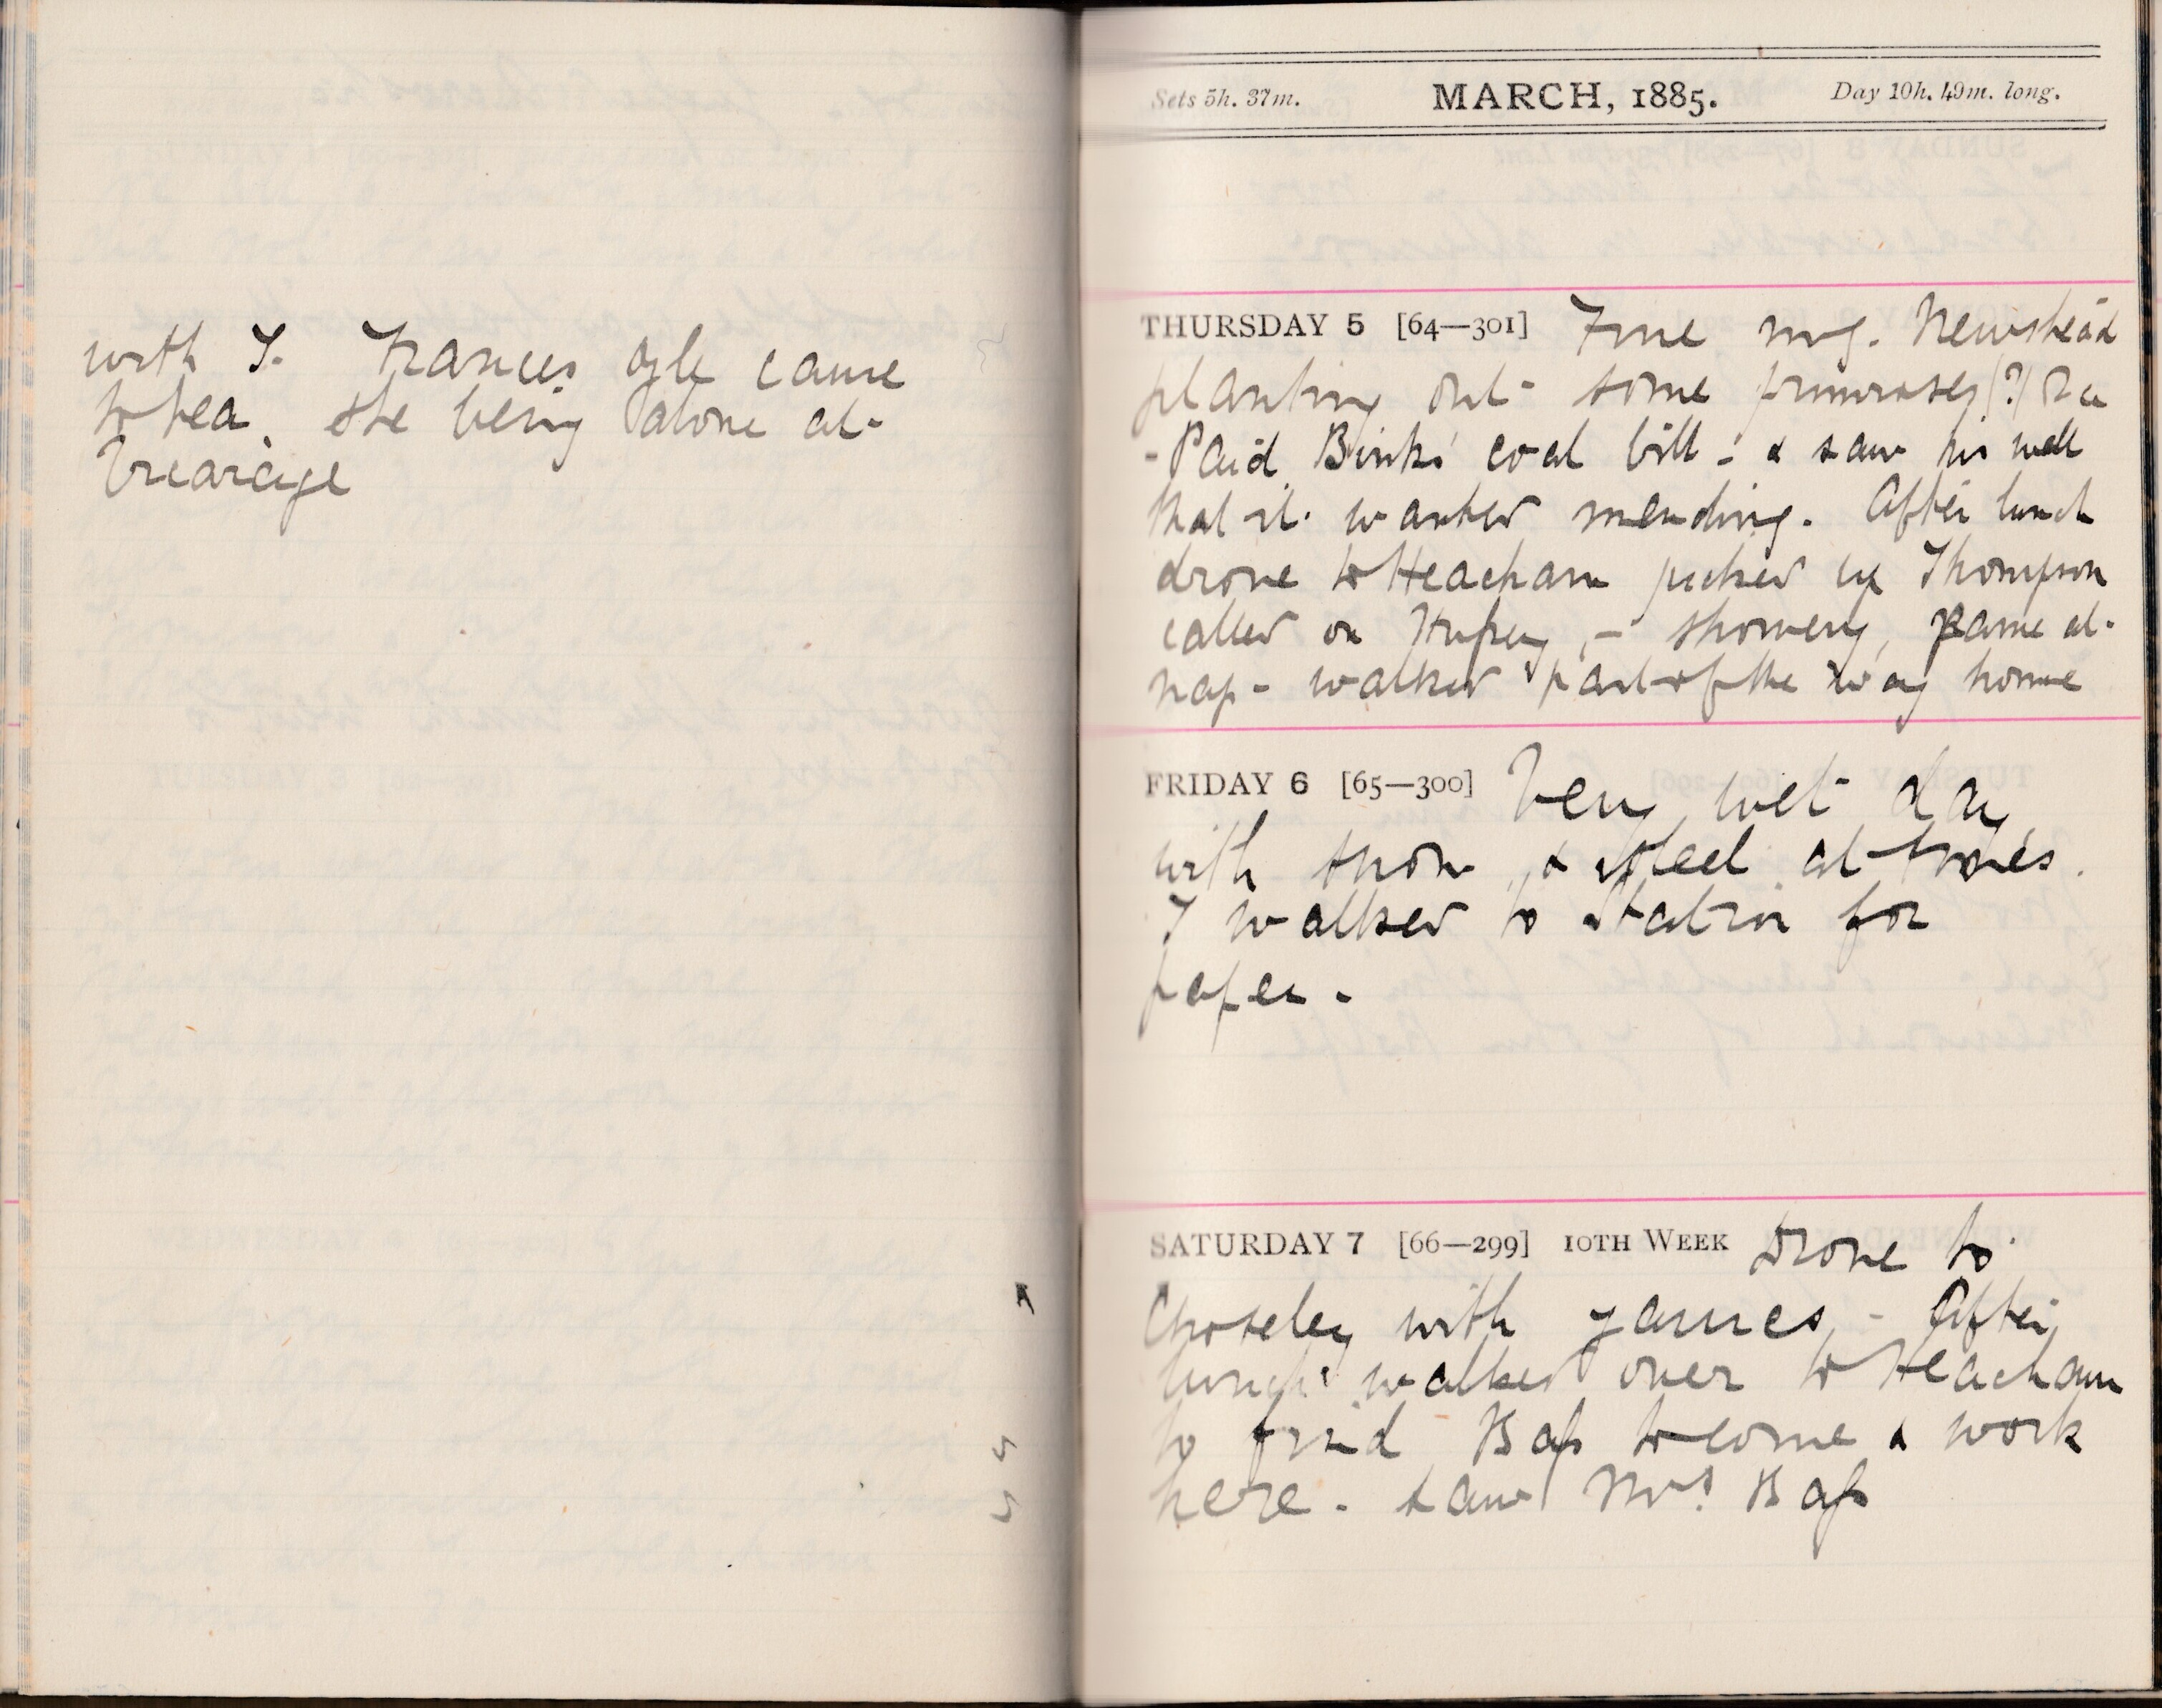 with T. Frances Ogle came
to tea. she being alone at
Vicarage
Sets 5h. 37m. MARCH, 1885. Day 10h. 49m. long.
THURSDAY 5 [64—301] Fine mg. Newstead
planting out some primroses (?) &c
- Paid Binks' coal bill - & saw his well
that it wanted mending. After lunch
drove to Heacham picked up Thompson
called on - showery, game at
nap - walked part of the way home
FRIDAY 6 [65—300] Very wet day
with snow & sleet at times.
I walked to Station for
paper.
SATURDAY 7 [66—299] 10TH WEEK Drove to
Choseley with James - After
lunch walked over to Heacham
to find to come & work
here. saw Mrs.